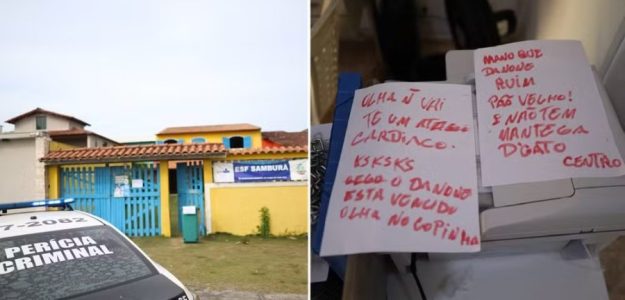 7-2082
PERÍCIA
CRIMINAL
ESF SAMBURÁ
OLHA Ñ VAI
TE UM ATAQUE
CARDIACO.
KSKSKS
CEGO O DANONE
ESTA VENCIDO
OLHA NO COPINHA
MANO QUE
DANONE
RUIM
PÃO VELHO!
E NÃO TEM
MANTEGA
D'GATO
CENTRO